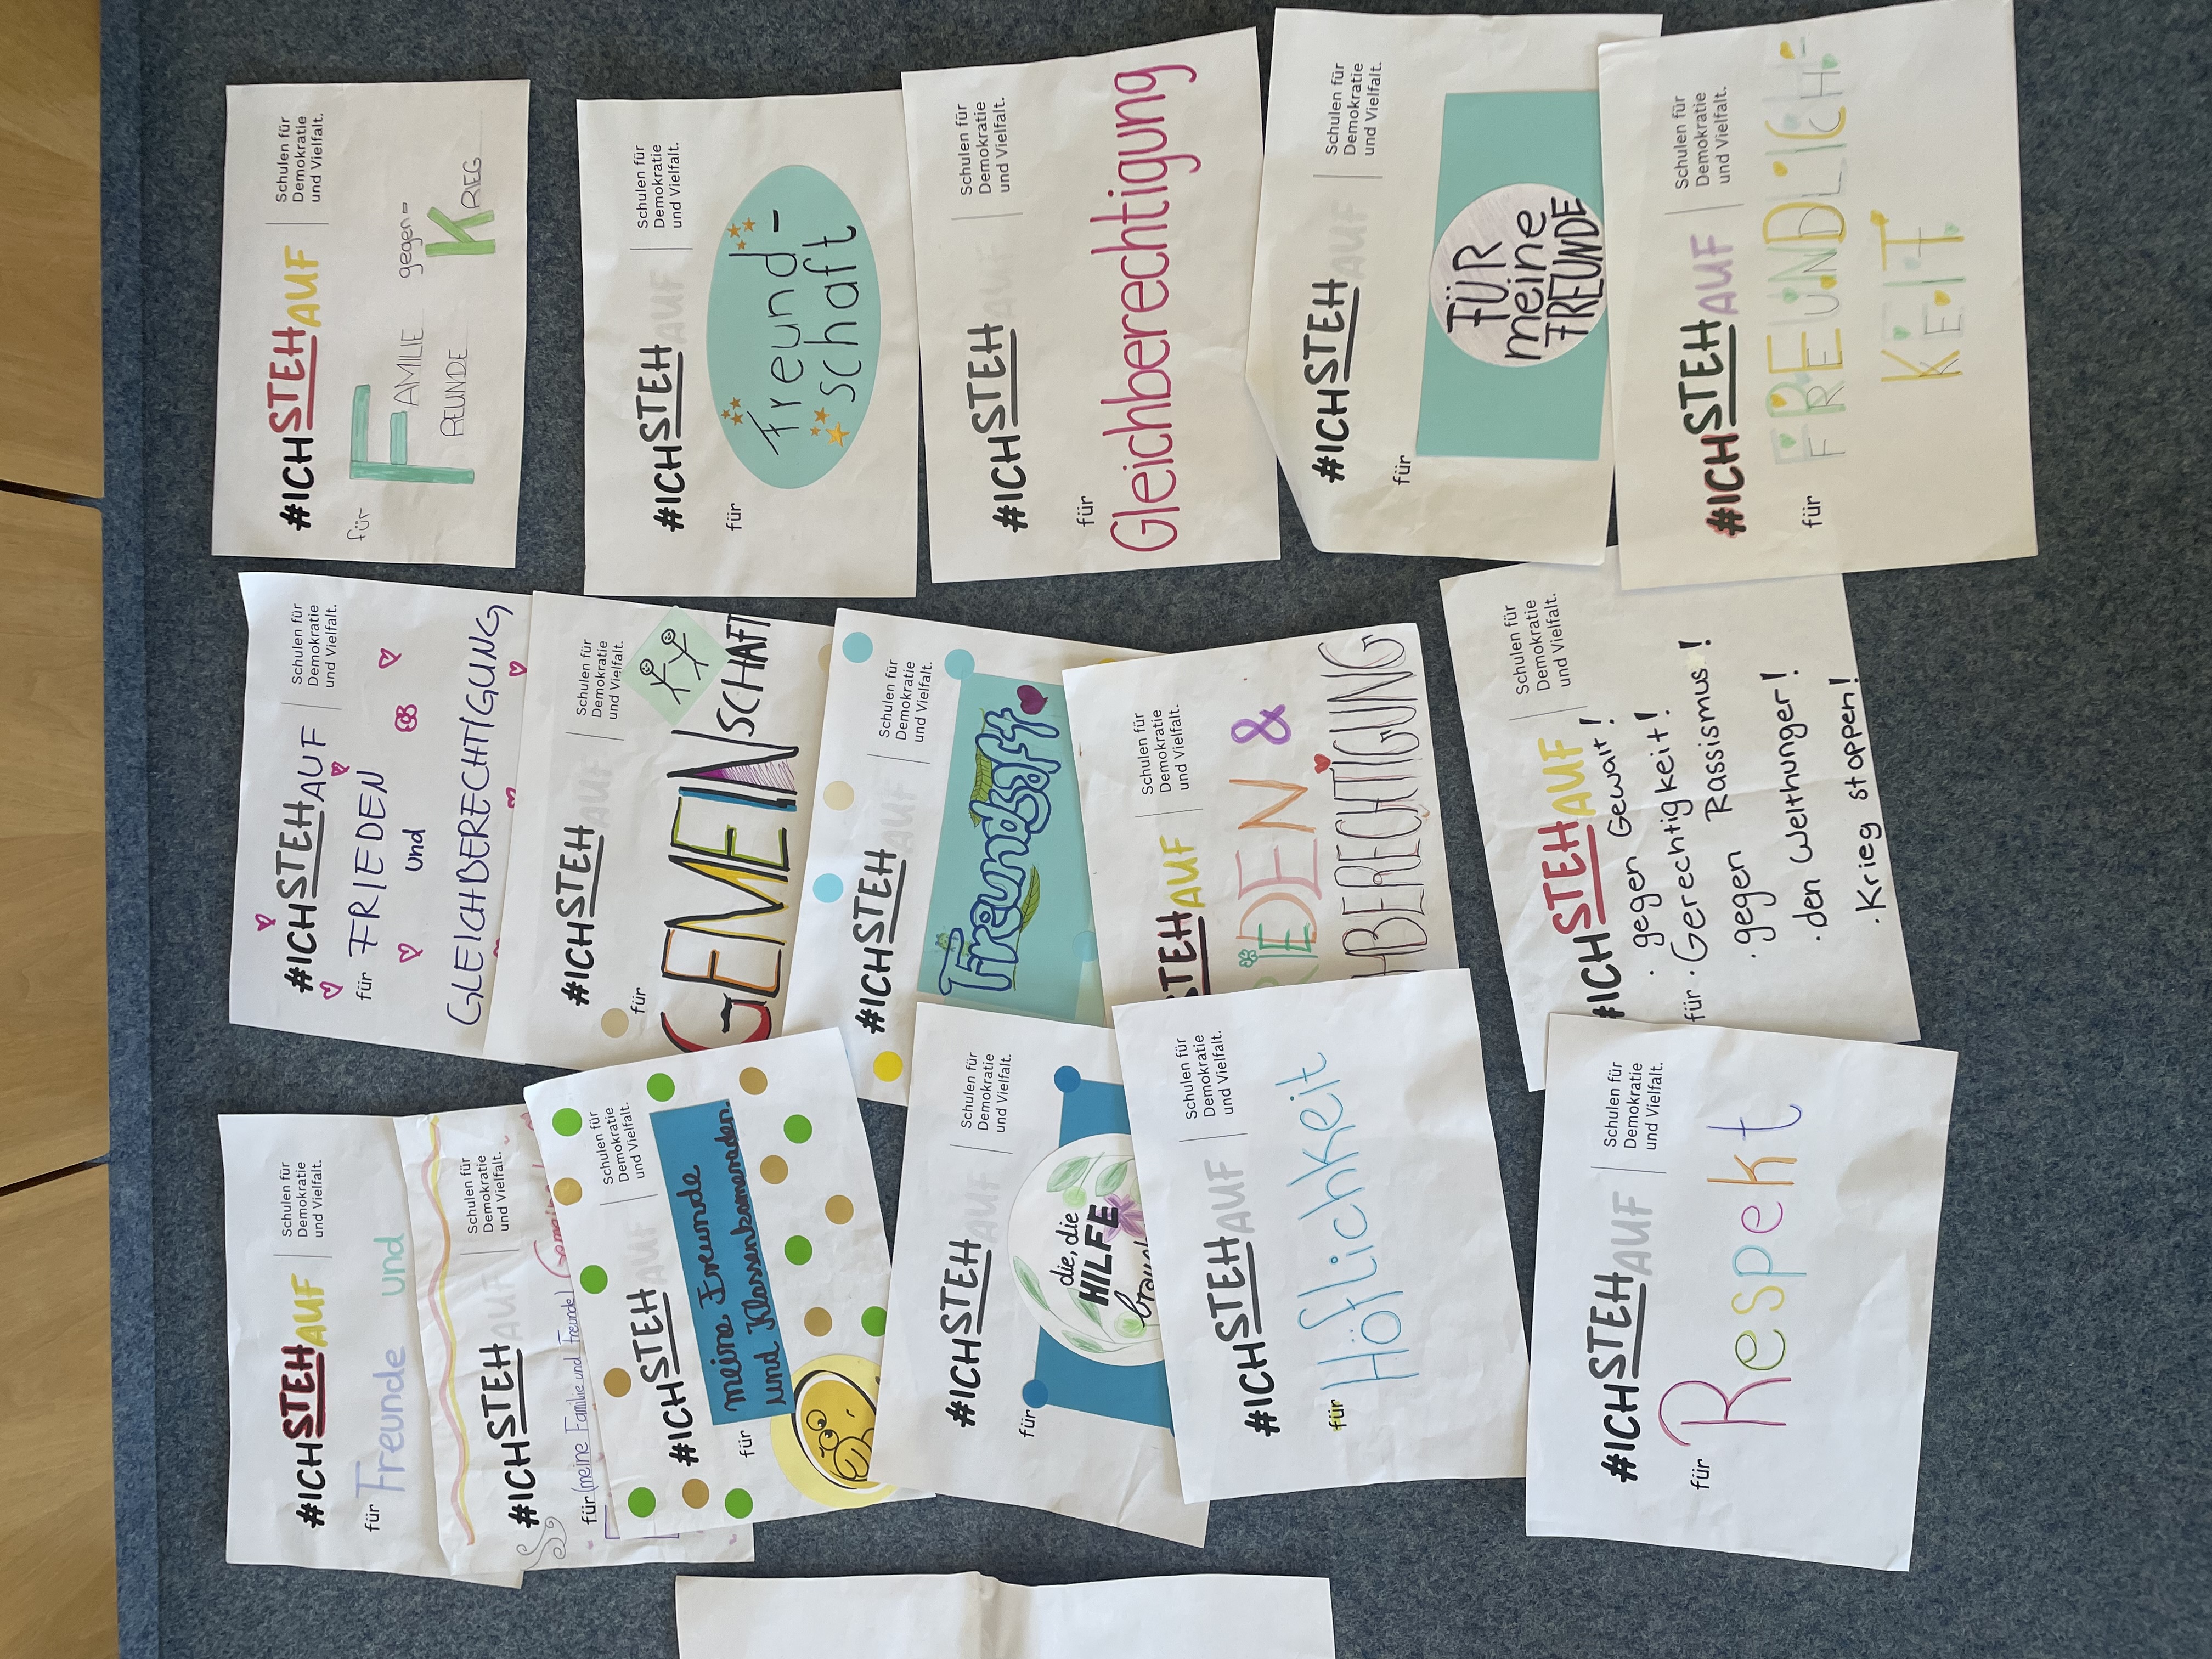 #ICHSTEHAUF
Schulen für
Demokratie
und Vielfalt.
für Freunde und
#ICHSTEHAUF
Schulen für
Demokratie
und Vielfalt.
für (meine Familie und Freunde)
#ICHSTEHAUF
Schulen für
Demokratie
und Vielfalt.
für meine Freunde
und Klassenkameraden.
#ICHSTEHAUF
Schulen für
Demokratie
und Vielfalt.
für
die, die
HILFE
#ICHSTEHAUF
Schulen für
Demokratie
und Vielfalt.
für Höflichkeit
#ICHSTEHAUF
Schulen für
Demokratie
und Vielfalt.
für Respekt
#ICHSTEHAUF
Schulen für
Demokratie
und Vielfalt.
für FRIEDEN
und
GLEICHBERECHTIGUNG
#ICHSTEHAUF
Schulen für
Demokratie
und Vielfalt.
für
GEMEINSCHAFT
#ICHSTEHAUF
Schulen für
Demokratie
und Vielfalt.
Freundsaft
STEHAUF
Schulen für
Demokratie
und Vielfalt.
RIEDEN &
HBERECHTIGUNG
#ICHSTEHAUF
Schulen für
Demokratie
und Vielfalt.
· gegen Gewalt!
für · Gerechtigkeit!
· gegen Rassismus!
· den Welthunger!
· Krieg stoppen!
#ICHSTEHAUF
Schulen für
Demokratie
und Vielfalt.
für FAMILIE gegen-
FREUNDE KRIEG
#ICHSTEHAUF
Schulen für
Demokratie
und Vielfalt.
für
Freund-
schaft
#ICHSTEHAUF
Schulen für
Demokratie
und Vielfalt.
für
Gleichberechtigung
#ICHSTEHAUF
Schulen für
Demokratie
und Vielfalt.
für
FÜR
meine
FREUNDE
#ICHSTEHAUF
Schulen für
Demokratie
und Vielfalt.
für FREUNDLICH-
KEIT